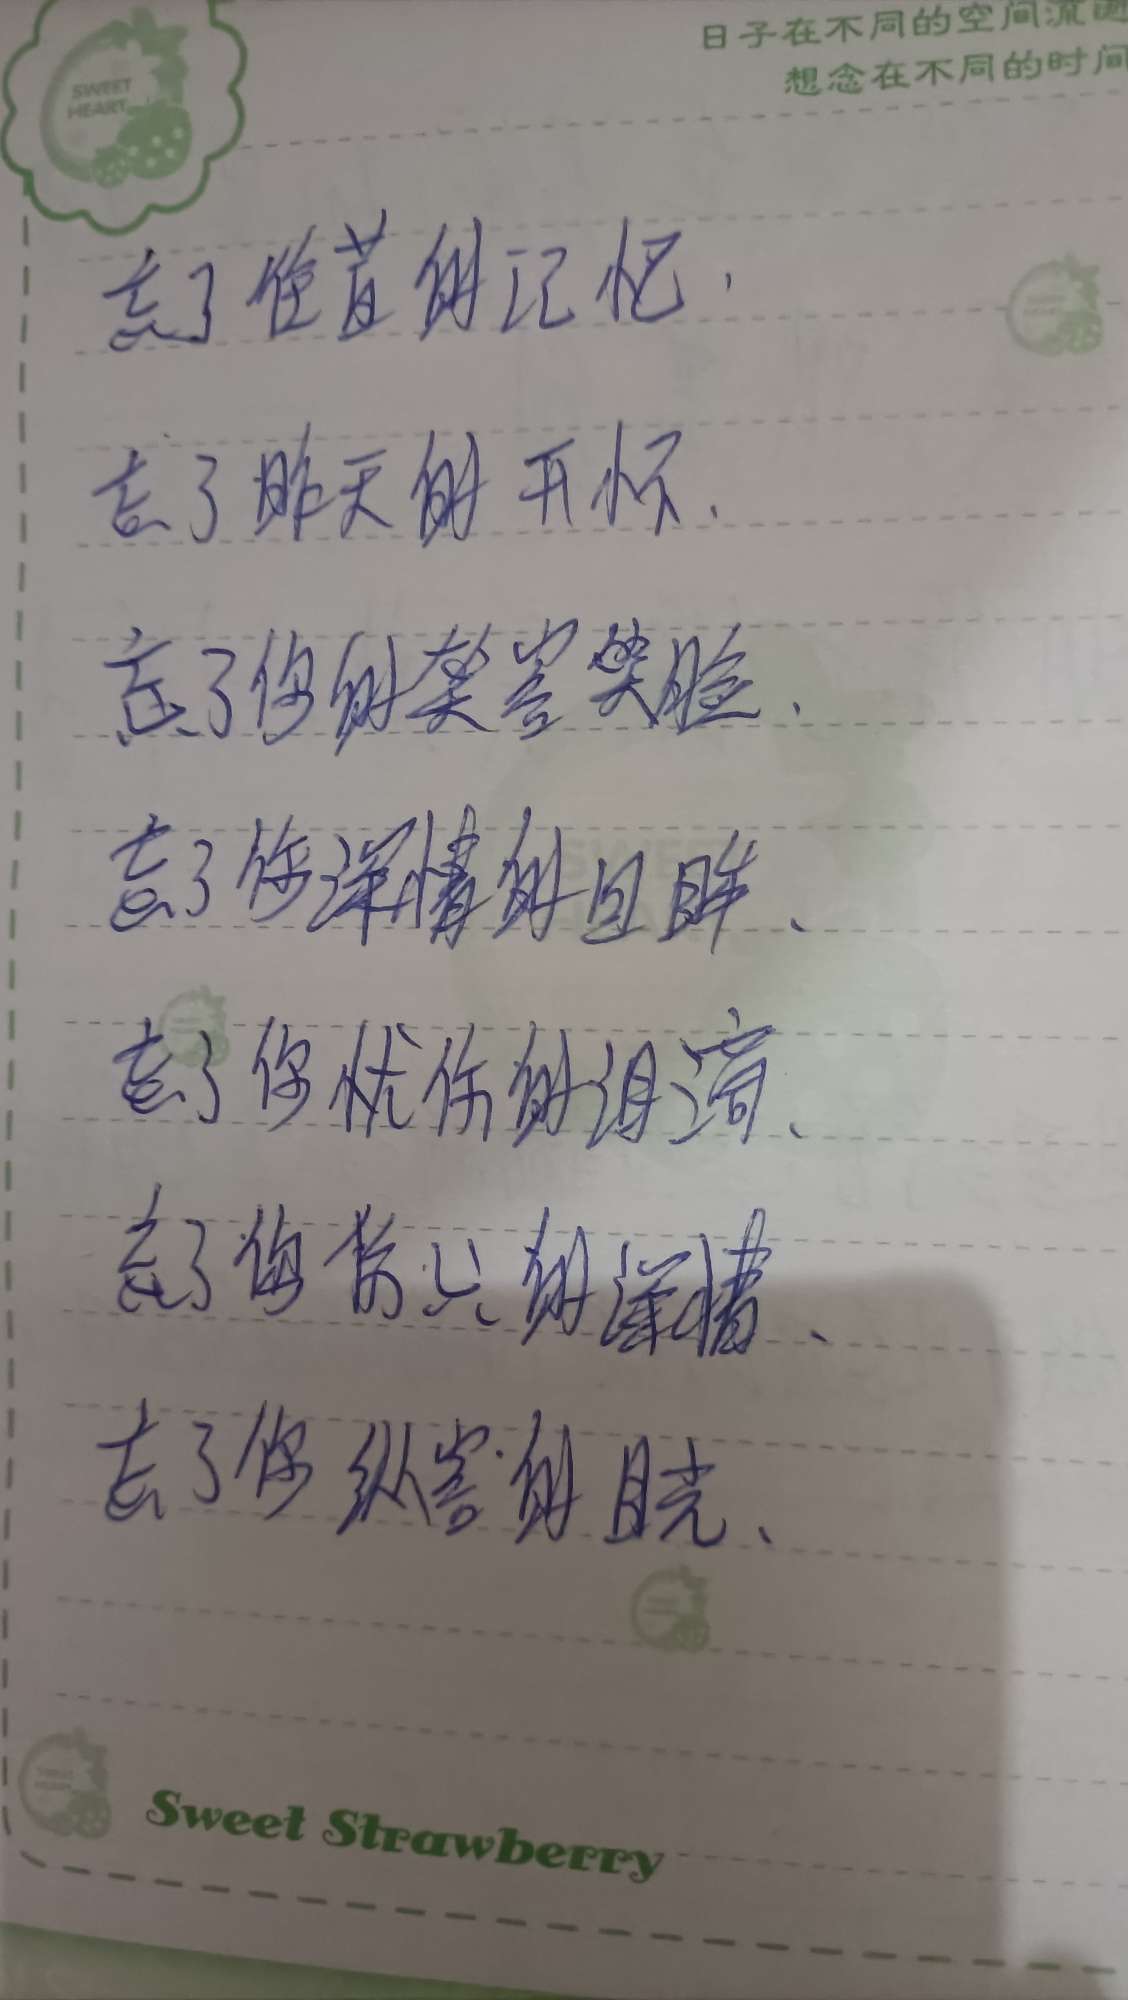 SWEET HEART
日子在不同的空间流
想念在不同的时间
忘了往昔的记忆.
忘了昨天的开怀.
忘了你的笑脸、
忘了你深情的目眸、
忘了你忧伤的泪滴、
忘了你的深情、
忘了你纵容的目光、
Sweet Strawberry